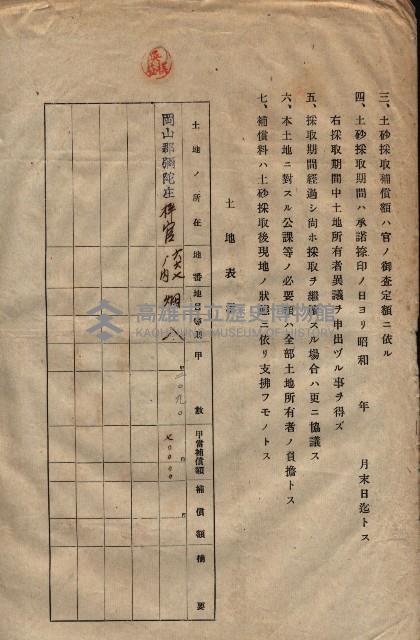 三、土砂採取補償額ハ官ノ御査定額ニ依ル
四、土砂採取期間ハ承諾捺印ノ日ヨリ昭和　年　月末日迄トス
右採取期間中土地所有者異議ヲ申出ヅル事ヲ得ズ
五、採取期間經過シ尚ホ採取ヲ繼續スル場合ハ更ニ協議ス
六、本土地ニ對スル公課等ノ必要額ハ全部土地所有者ノ負擔トス
七、補償料ハ土砂採取後現地ノ狀態ニ依リ支拂フモノトス
土地表
土地ノ所在　地番　地目　等則　甲數　甲當補償額　補償額　摘要
岡山郡彌陀庄　ノ内　畑　八
高雄市立歷史博物館
KAOHSIUNG MUSEUM OF HISTORY